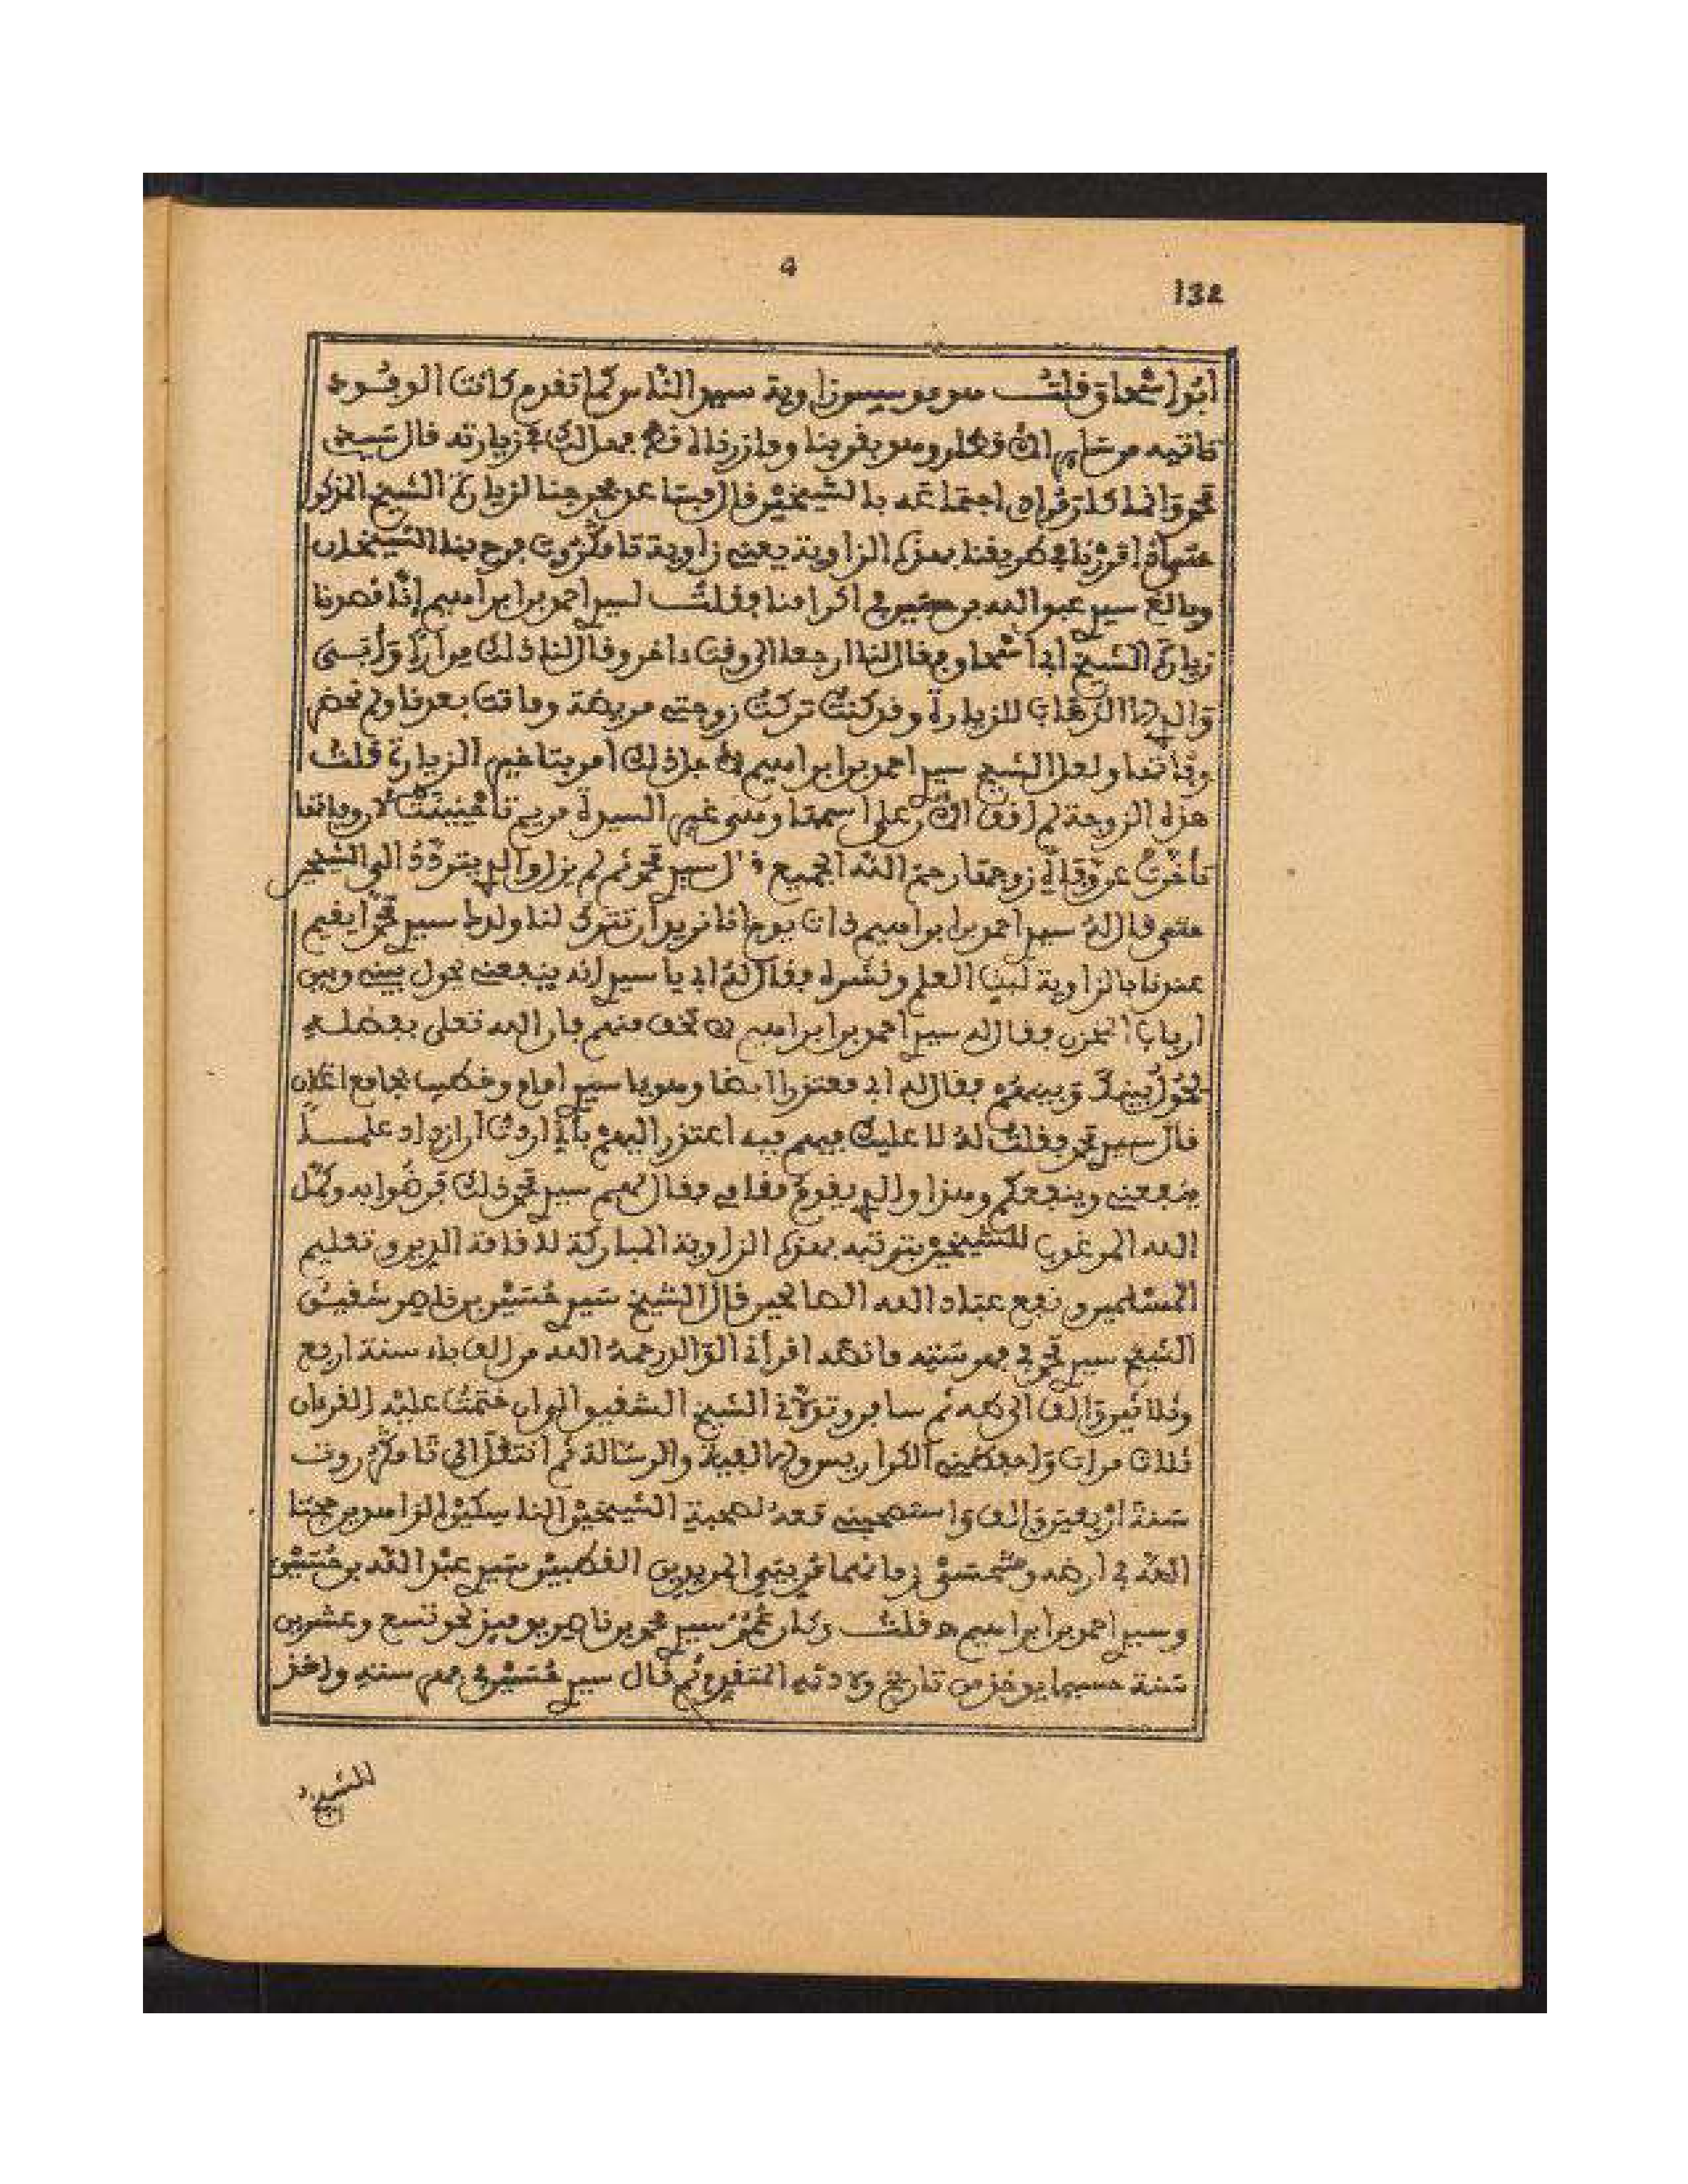 4
132
ابو اسحاق قلت هو مؤسس زاوية سيد الناس كما تقدم كانت الوفود
تاتيه من شاسع الاقطار وهو بقربنا وما زرناه فهم بهالك في زيارته قال سيدي
محمد وانما كان مراده اجتماعه بالشيخين قال فبينما نحن خرجنا لزيارة الشيخ المذكور
حتى اذا اقرزنا في طريقنا بهذه الزاوية يعني زاوية تامكروت فرح بنا الشيخان
وبالغ سيدي عبد الله بن حسين في اكرامنا فقلت لسيدي احمد بن ابراهيم انا قصدنا
زيارة الشيخ ابي اسحاق فقال لنا ارجعا الى وقت داخر وقال لنا ذلك مرارا وابى
والدي الا الذهاب للزيارة وقد كنت تركت زوجتي مريضة وماتت بعدنا ولم نحضر
وفاتها ولعل الشيخ سيدي احمد بن ابراهيم لاجل ذلك امرنا بتاخير الزيارة قلت
هذه الزوجة لم اقف الان على اسمها وهي غير السيدة مريم لان وفاتها
تأخرت عن وفاة زوجها رحم الله الجميع قال سيدي محمد ثم لم يزل والدي يتردد الى الشيخين
حتى قال له سيدي احمد بن ابراهيم ذات يوم انا نريد ان تترك لنا ولدك سيدي محمدا يقيم
عندنا بالزاوية لبث العلم ونشره فقال له ابي يا سيدي انه ينفعني يحول بيني وبين
ارباب المخزن فقال له سيدي احمد بن ابراهيم لا تخف منهم فان الله تعلى بفضله
يحول بينك وبينهم فقال له ابي معتذرا ايضا وهو يا سيدي امام وخطيب بجامع اغلان
قال سيدي محمد فقلت له لا عليك فيهم فيه اعتذر اليهم باني اردت ان ازداد علمـــا
ينفعني وينفعكم وهذا والدي يقوم مقامي فقال لهم سيدي محمد ذلك فرضوا به وكمل
الله المرغوب للشيخين بترتبه بهذه الزاوية المباركة لاقامة الدين وتعليم
المسلمين ونفع عباد الله الصالحين قال الشيخ سيدي حسين بن ناصر شقيق
الشيخ سيدي محمد في فهرسته ما نصه اقرأني الوالد رحمه الله من الف باء سنة اربع
وثلاثين والف الى طه ثم سافر وتولاني الشيخ الشقيق الى ان ختمت عليه القرءان
ثلاث مرات واحفظني الكراريس والالفية والرسالة ثم انتقل الى تامكروت
سنة اربعين والف واستصحبني معه لصحبة الشيخين الناسكين الزاهدين حجتا
الله في ارضه وشمسي زمانهما مربيي المريدين القطبين سيدي عبد الله بن حسين
وسيدي احمد بن ابراهيم ه قلت وكان عمر سيدي محمد بن ناصر يومئذ نحو تسع وعشرين
سنة حسبما يوخذ من تاريخ ولادته المتقدم ثم قال سيدي حسين في فهرسته واخذ